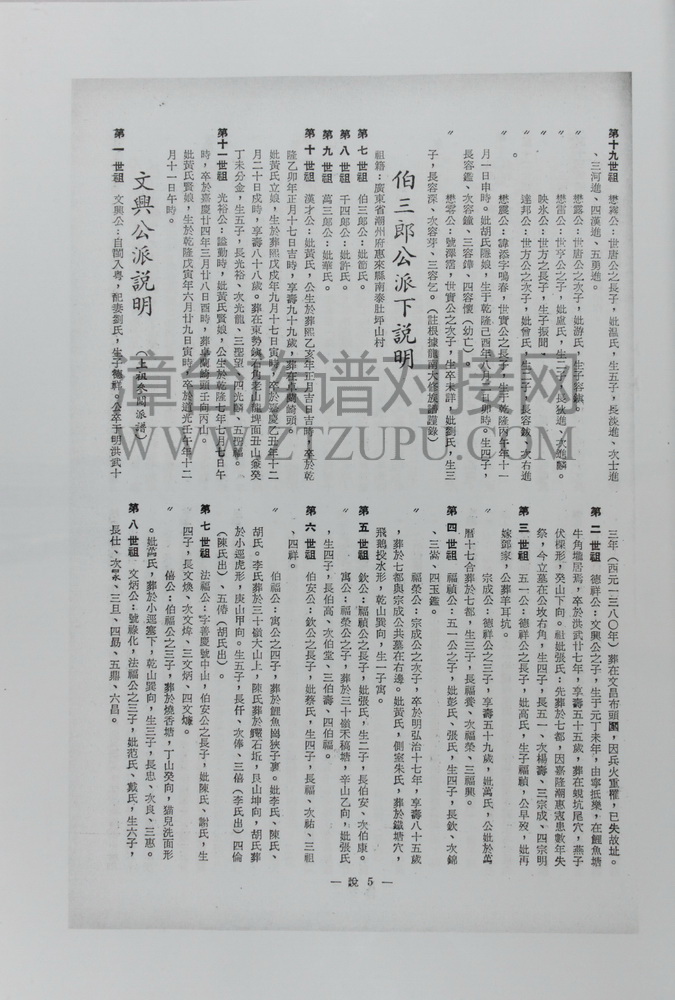 第十九世祖　懋霖公：世唐公之長子，妣溫氏，生五子，長淡進、次士進
、三河進、四漢進、五勇進。
〃　懋露公：世唐公之次子，妣游氏，生子容鎮。
〃　懋雷公：世亨公之子，妣盧氏，生二子，長狄進、次進麟。
〃　映氷公：世方公之長子，生子振聞。
〃　達邦公：世方公之次子，妣曾氏，生二子，長容欽、次右進
。
〃　懋震公：諱添字鳴春，世實公之長子，生于乾隆丙午年十一
月一日申時。妣胡氏隱娘，生于乾隆己酉年八月八日卯時。生四子，
長容鑑、次容鐘、三容鏵、四容懷（幼亡）。
〃　懋雲公：號澤霑，世實公之次子，生卒未詳，妣劉氏，生三
子，長容深、次容芽、三容乞。（註根據龍南大修族譜謹錄）
伯三郎公派下說明
祖籍：廣東省潮州府惠來縣南泰肚坪山村
第七世祖　伯三郎公：妣范氏。
第八世祖　千四郎公：妣許氏。
第九世祖　萬三郎公：妣華氏。
第十世祖　漢才公：妣黃氏，公生於葬熙乙亥年正月吉日吉時，卒於乾
隆乙卯年正月十七日吉時，享壽九十九歲，葬在卓蘭崎頭。
妣黃氏立娘，生於葬熙戊戌年九月十七日寅時，卒於嘉慶乙丑年十二
月二十日戍時，享壽八十八歲。葬在東勢鎮石角老山龍埤面丑山兼癸
丁未分金，生五子，長光裕、次光龍、三聖望、四光麟、五聖福。
第十一世祖　光裕公：謚勤時，妣黃氏賢娘，公生於乾隆七年七月七日午
時，卒於嘉慶廿四年三月廿八日酉時，葬卓蘭崎頭壬向丙山。
妣黃氏賢娘，生於乾隆戊寅年六月廿九日寅時，卒於道光壬午年十二
月十一日午時。
文興公派說明　（上祖參閱派譜）
第一世祖　文興公：自閩入粵，配妻劉氏，生子德祥。公卒于明洪武十
三年（西元一三八〇年）葬在文昌布頭園，因兵火重權，已失故址。
第二世祖　德祥公：文興公之子，生于元丁未年，由寧抵樂，在鯉魚塘
牛角壠居焉，卒於洪武廿七年，享壽五十五歲，葬在蜆坑尾穴，燕子
伏樑形，癸山下向。祖妣張氏：先葬於七都，因嘉隆潮惠寇患數年失
祭，今立墓在公坟右角，生四子，長五一、次楊壽、三宗成、四宗明
第三世祖　五一公：德祥公之長子，妣高氏，生子福禎，公早歿，妣再
嫁鄧家，公葬羊耳坑。
〃　宗成公：德祥公之三子，享壽五十九歲，妣萬氏，公妣於萬
曆十七合葬於七都，生三子，長福養、次福榮、三福興。
第四世祖　福禎公：五一公之子，妣彭氏、張氏，生四子，長欽、次錦
、三嵩、四玉鑑。
〃　福榮公：宗成公之次子，卒於明弘治十七年，享壽八十五歲
，葬於七都與宗成公共墓在右邊。妣黃氏，側室朱氏，葬於鐵塘穴，
飛鵝投水形，乾山巽向，生一子寓。
第五世祖　欽公：福禎公之長子，妣張氏，生二子，長伯安、次伯康。
〃　寓公：福榮公之子，葬於三十嶺禾稿塘，辛山乙向，妣張氏
，生四子，長伯高、次伯堂、三伯壽、四伯福。
第六世祖　伯安公：欽公之長子，妣蔡氏，生四子，長福、次祐、三祖
、四祥。
〃　伯福公：寓公之四子，葬於鯉魚崗狹子裏。妣李氏、陳氏、
胡氏。李氏葬於三十嶺大山上，陳氏葬於鑼石坵，艮山坤向，胡氏葬
於小逕虎形，庚山甲向。生五子，長仟、次俸、三倍（李氏出）四倫
（陳氏出）、五偆（胡氏出）。
第七世祖　法福公：字善慶號中山，伯安公之長子，妣陳氏、謝氏，生
四子，長文煥、次文煒、三文炳、四文㷍。
〃　僖公：伯福公之三子，葬於燒香塘，丁山癸向，猫兒洗面形
。妣萬氏，葬於小逕塞下，乾山巽向，生三子，長忠、次良、三惠。
第八世祖　文炳公：號祿化，法福公之三子，妣范氏、戴氏，生六子，
長仕、次杲、三旦、四勗、五鼎、六昌。
— 說 5 —
章氏族谱对接网
WWW.ZTZUPU.COM